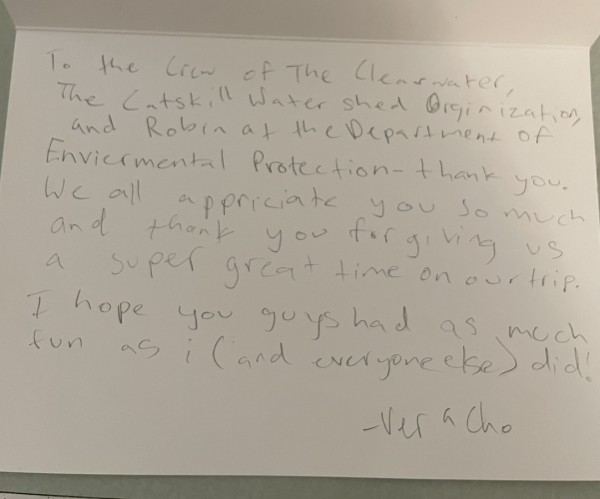 To the Crew of The Clearwater,
The Catskill Water shed Orginization,
and Robin at the Department of
Enviermental Protection - thank you.
We all appriciate you so much
and thank you for giving us
a super great time on our trip.
I hope you guys had as much
fun as i (and everyone else) did!
-Vera Cho